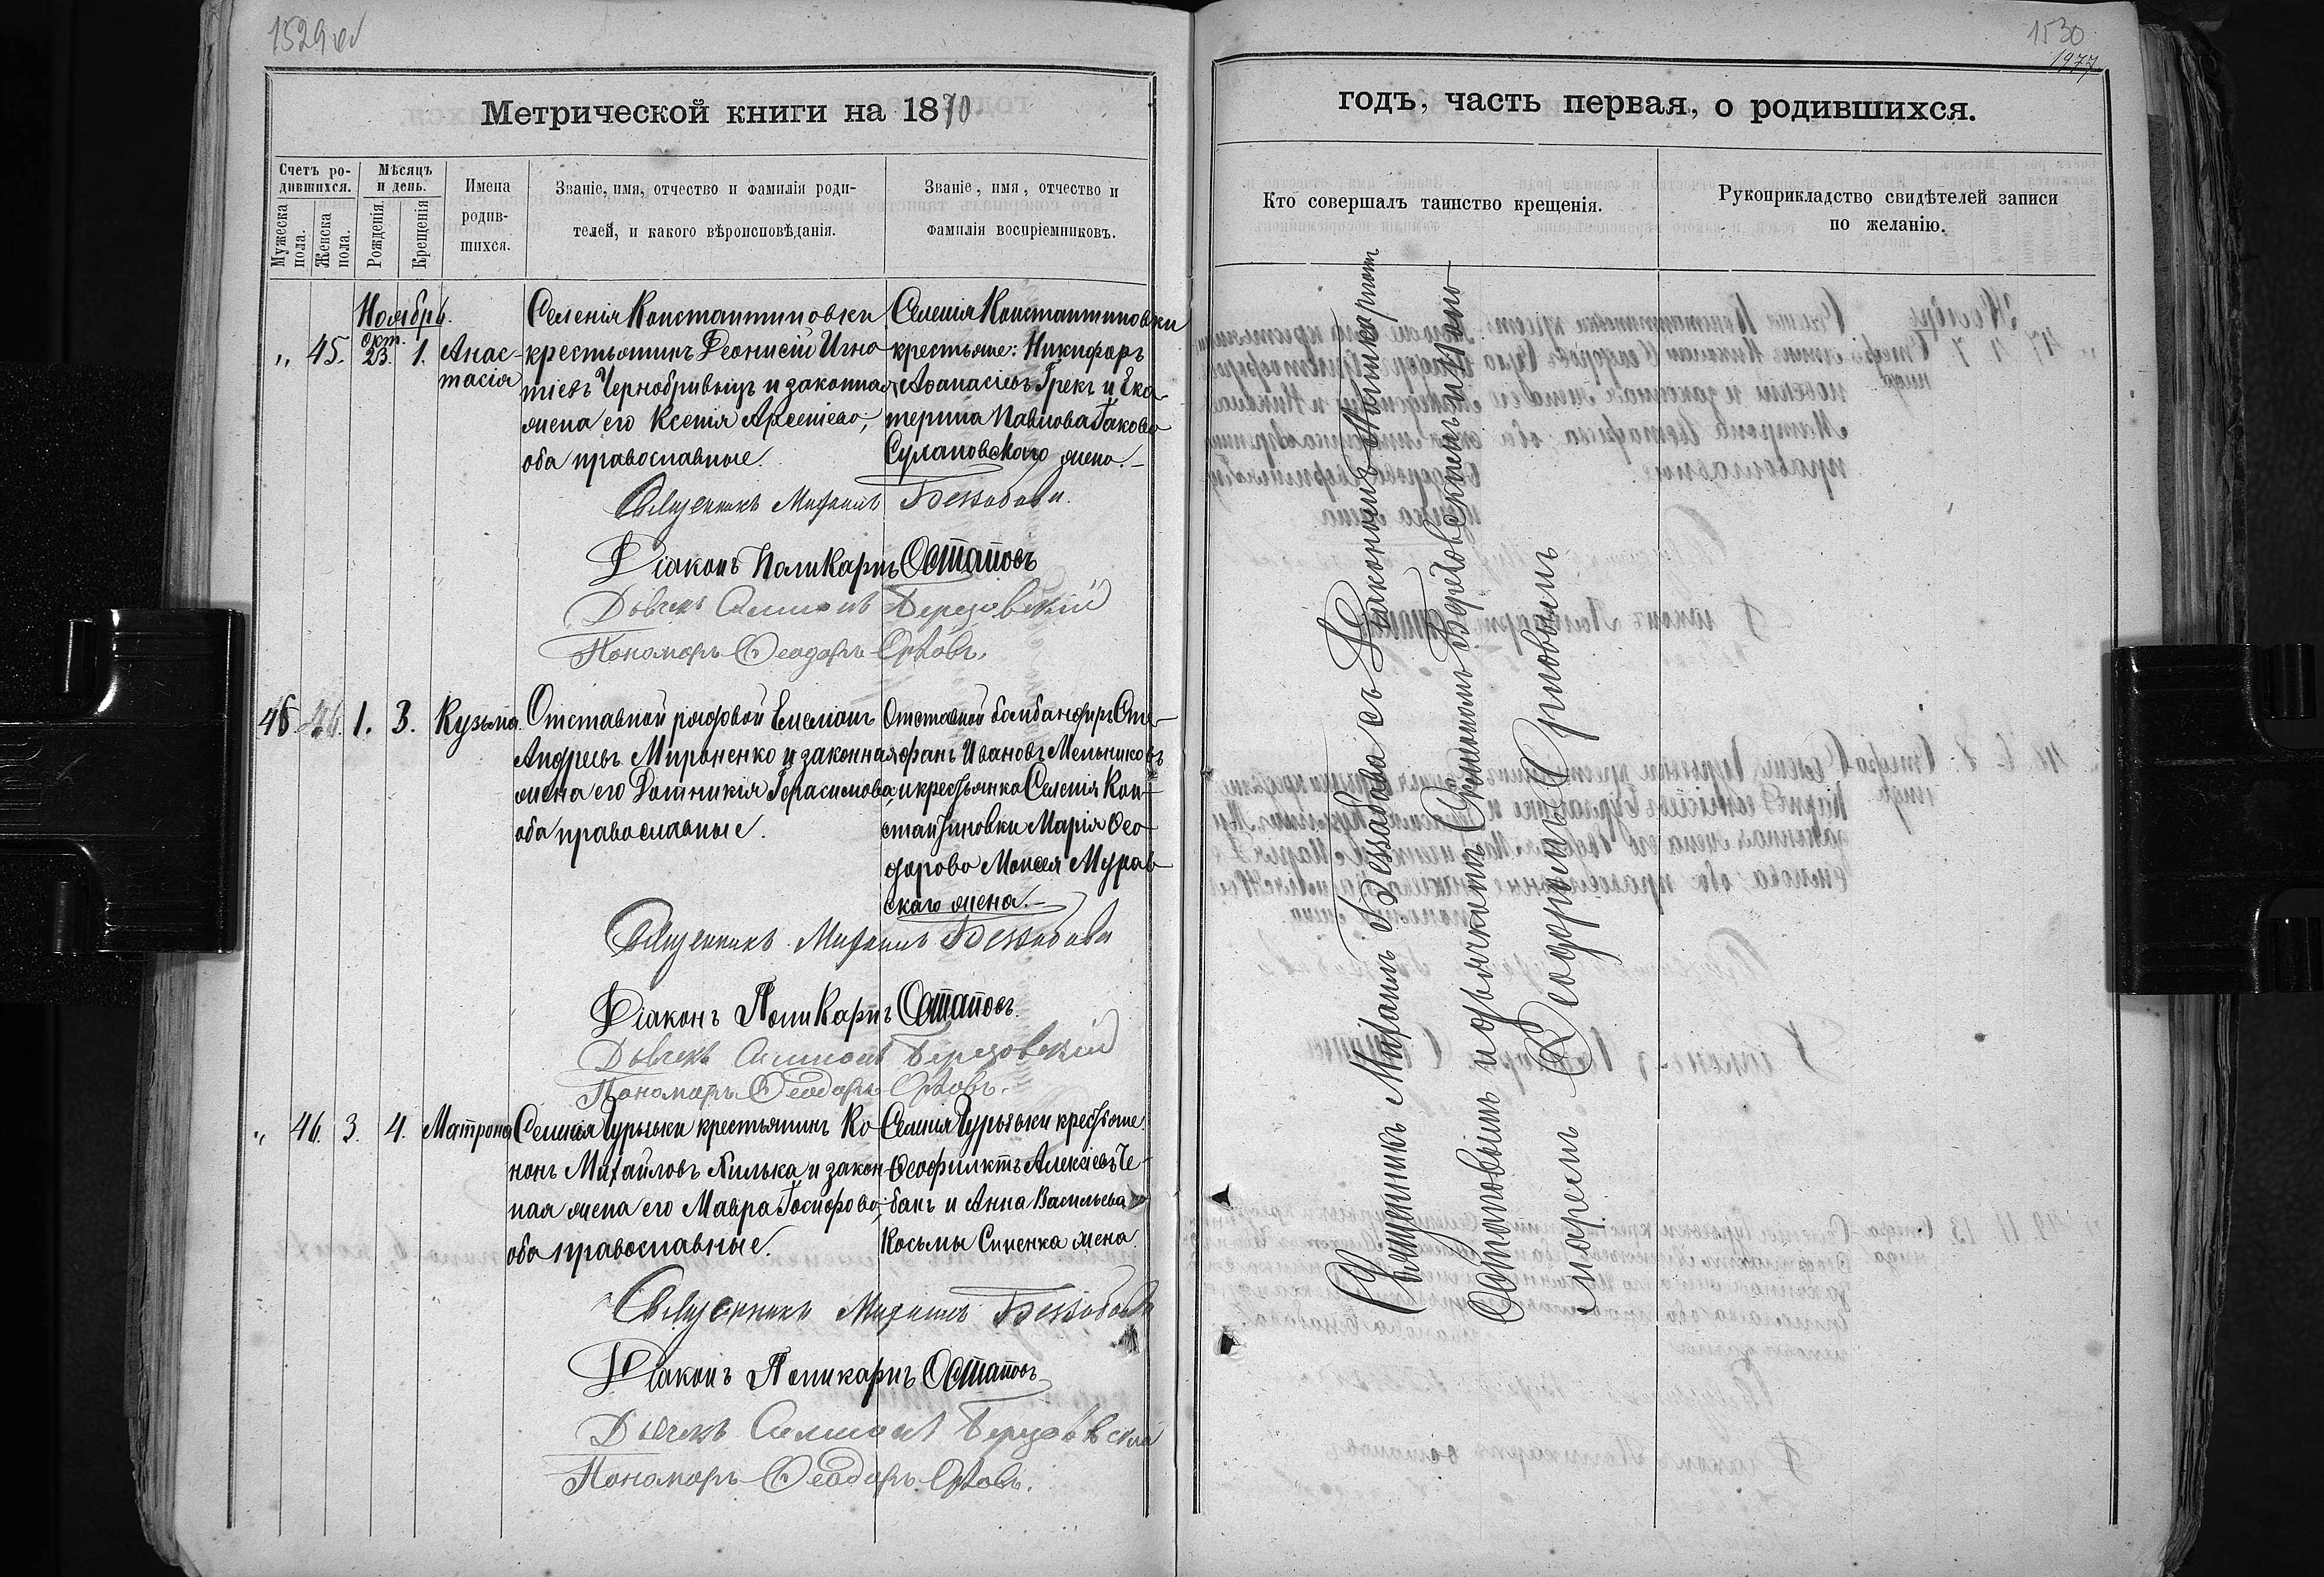 1529 об
Метрической книги на 1870
Счетъ ро-
дившихся.
Мѣсяцъ
и день.
Мужеска
пола.
Женска
пола.
Рожденія.
Крещенія
Имена
родив-
шихся.
Званіе, имя, отчество и фамилія роди-
телей, и какого вѣроисповѣданія.
Званіе, имя, отчество и
фамилія воспріемниковъ.
Ноябрь.
„ 45. Окт. 23. 1. Анас-
тасія
Селенія Константиновки
крестьянинъ Деонисій Игна-
тіевъ Чернобривыцъ и законная
жена его Ксенія Арсеніева;
оба православные.
Селенія Константиновки
крестьяне: Никифоръ
Аѳанасіевъ Грекъ и Ека-
терина Павлова Іакова
Сулановскаго жена.
Священникъ Михаилъ Бессабова
Діаконъ Поликарпъ Остаповъ
Дьячекъ Симеонъ Березовскій
Пономарь Ѳеодоръ
46. 1. 3. Кузьма.
Отставной рядовой Емеліанъ
Андреевъ Мироненко и законная
жена его Домникія Герасимова,
оба православные.
Отставной бомбандиръ Сте-
фанъ Ивановъ Мельниковъ
и крестьянка Селенія Кон-
стантиновки Марія Ѳео-
дорова Моисея Мурав-
скаго жена.
Священникъ Михаилъ Бессабова
Діаконъ Поликарпъ Остаповъ.
Дьячекъ Симеонъ Березовскій
Пономарь Ѳеодоръ
„ 46. 3. 4. Матрона
Селенія Гурьевки крестьянинъ Ко-
нонъ Михайловъ Килька и закон-
ная жена его Мавра Іосифова;
оба православные.
Селенія Гурьевки крестьяне
Ѳеофилктъ Алексіевъ Че-
банъ и Анна Васильева
Косьмы Сипенка жена.
Священникъ Михаилъ Бессабова
Діаконъ Поликарпъ Остаповъ
Дьячекъ Симеонъ Березовскій
Пономарь Ѳеодоръ
1530
1977
годъ, часть первая, о родившихся.
Кто совершалъ таинство крещенія.
Рукоприкладство свидѣтелей записи
по желанію.
Священникъ Михаилъ Бессабова съ Діакономъ Поликарпомъ
Остаповымъ и дьячкомъ Симеономъ Березовскимъ и поно-
маремъ Ѳеодоромъ